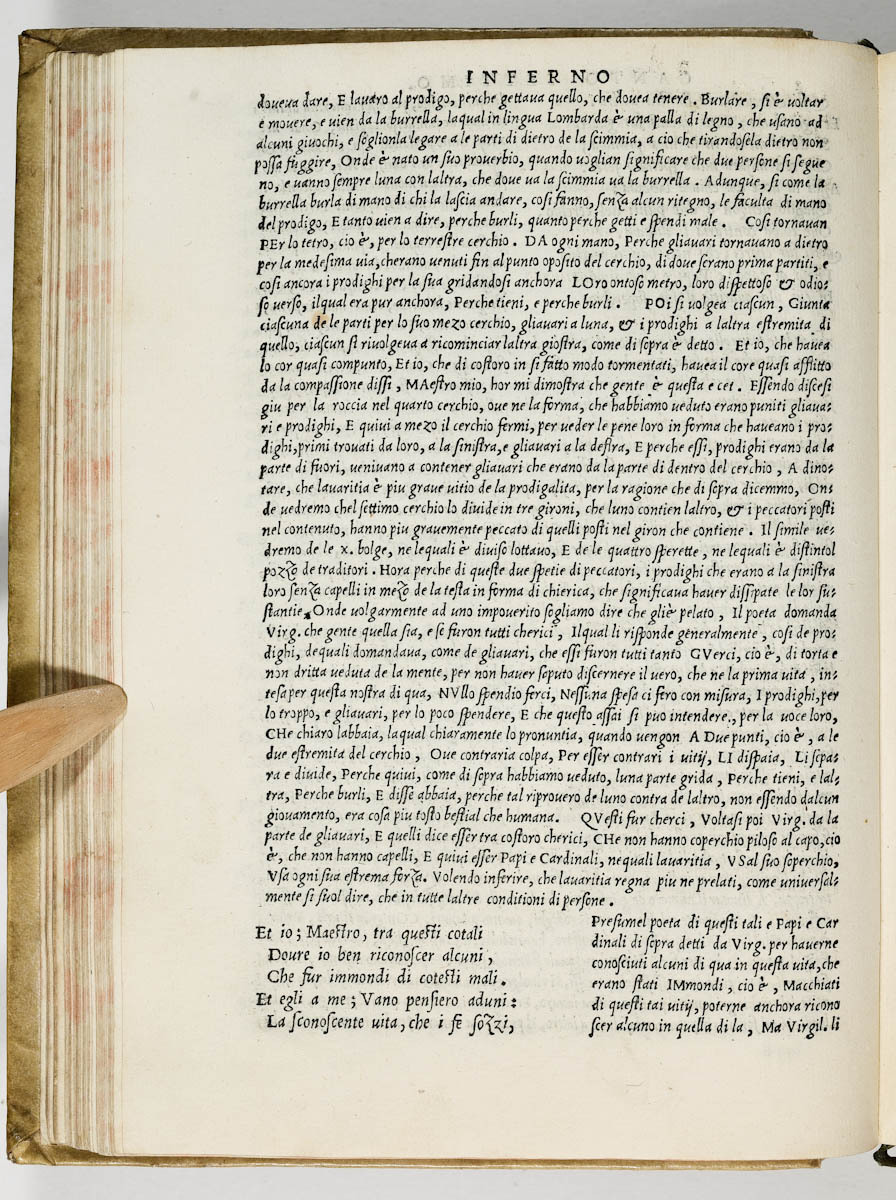 INFERNO
doveva dare, E lavaro al prodigo, perche gettava quello, che dovea tenere. Burlare, si è voltar
e movere, e vien da la burrella, laqual in lingua Lombarda è una palla di legno, che usano ad
alcuni giuochi, e soglionla legare a le parti di dietro de la scimmia, a cio che tirandosela dietro non
possa fuggire, Onde è nato un suo proverbio, quando voglian significare che due persone si segue
no, e vanno sempre luna con laltra, che dove va la scimmia va la burrella. Adunque, si come la
burrella burla di mano di chi la lascia andare, cosi fanno, senza alcun ritegno, le faculta di mano
del prodigo, E tanto vien a dire, perche burli, quanto perche getti e spendi male. Cosi tornavan
PEr lo tetro, cio è, per lo terrestre cerchio. DA ogni mano, Perche gliavari tornavano a dietro
per la medesima via, cherano venuti fin al punto oposito del cerchio, di dove serano prima partiti, e
cosi ancora i prodighi per la sua gridandosi anchora LOro ontoso metro, loro dispettoso & odio-
so verso, ilqual era pur anchora, Perche tieni, e perche burli. POi si volgea ciascun, Giunta
ciascuna de le parti per lo suo mezo cerchio, gliavari a luna, & i prodighi a laltra estremita di
quello, ciascun si rivolgeva a ricominciar laltra giostra, come di sopra è detto. Et io, che havea
lo cor quasi compunto, Et io, che di costoro in si fatto modo tormentati, havea il core quasi afflitto
da la compassione dissi, MAestro mio, hor mi dimostra che gente è questa e cet. Essendo discesi
giu per la roccia nel quarto cerchio, ove ne la forma, che habbiamo veduto erano puniti gliava-
ri e prodighi, E quivi a mezo il cerchio fermi, per veder le pene loro in forma che haveano i pro-
dighi, primi trovati da loro, a la sinistra, e gliavari a la destra, E perche essi, prodighi erano da la
parte di fuori, venivano a contener gliavari che erano da la parte di dentro del cerchio, A dino-
tare, che lavaritia è piu grave vitio de la prodigalita, per la ragione che di sopra dicemmo, On-
de vedremo chel settimo cerchio lo divide in tre gironi, che luno contien laltro, & i peccatori posti
nel contenuto, hanno piu gravemente peccato di quelli posti nel giron che contiene. Il simile ve-
dremo de le x. bolge, ne lequali è diviso lottavo, E de le quattro sperette, ne lequali è distintol
pozzo de traditori. Hora perche di queste due spetie di peccatori, i prodighi che erano a la sinistra
loro senza capelli in mezo de la testa in forma di chierica, che significava haver dissipate le lor su-
stantie, Onde volgarmente ad uno impoverito sogliamo dire che gliè pelato, Il poeta domanda
Virg. che gente quella sia, e se furon tutti cherici, Ilqual li risponde generalmente, cosi de pro-
dighi, dequali domandava, come de gliavari, che essi furon tutti tanto GVerci, cio è, di torta e
non dritta veduta de la mente, per non haver seputo discernere il vero, che ne la prima vita, in-
tesa per questa nostra di qua, NVllo spendio ferci, Nessuna spesa ci fero con misura, I prodighi, per
lo troppo, e gliavari, per lo poco spendere, E che questo assai si puo intendere, per la voce loro,
CHe chiaro labbaia, laqual chiaramente lo pronuntia, quando vengon A Due punti, cio è, a le
due estremita del cerchio, Ove contraria colpa, Per esser contrari i vitij, LI dispaia, Li sepa-
ra e divide, Perche quivi, come di sopra habbiamo veduto, luna parte grida, Perche tieni, e lal-
tra, Perche burli, E disse abbaia, perche tal riprovero de luno contra de laltro, non essendo dalcun
giovamento, era cosa piu tosto bestial che humana. QVesti fur cherci, Voltasi poi Virg. da la
parte de gliavari, E quelli dice esser tra costoro cherici, CHe non hanno coperchio piloso al capo, cio
è, che non hanno capelli, E quivi esser Papi e Cardinali, nequali lavaritia, VSa il suo soperchio,
Vsa ogni sua estrema forza. Volendo inferire, che lavaritia regna piu ne prelati, come universal-
mente si suol dire, che in tutte laltre conditioni di persone.
Et io; Maestro, tra questi cotali
Dovre io ben riconoscer alcuni,
Che fur immondi di cotesti mali.
Et egli a me; Vano pensiero aduni:
La sconoscente vita, che i fe sozzi,
Presumel poeta di questi tali e Papi e Car
dinali di sopra detti da Virg. per haverne
conosciuti alcuni di qua in questa vita, che
erano stati IMmondi, cio è, Macchiati
di questi tai vitij, poterne anchora ricono
scer alcuno in quella di la, Ma Virgil. li